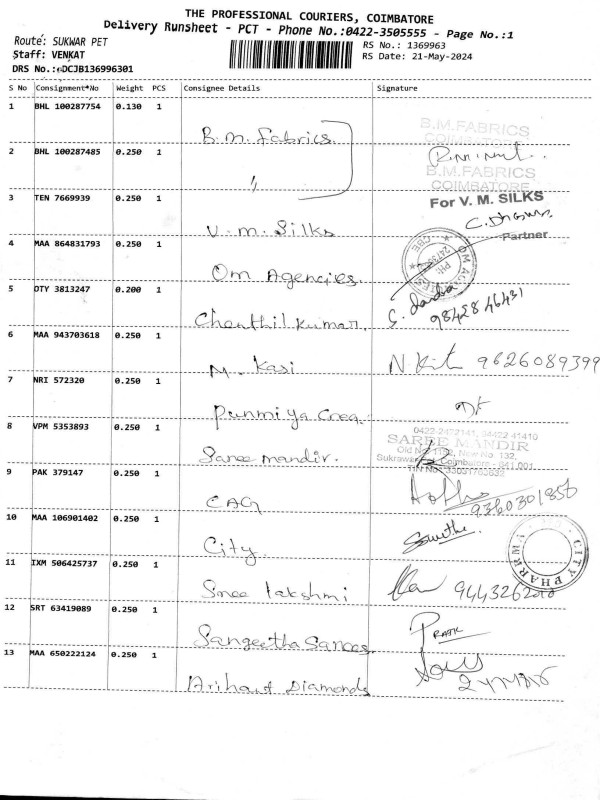 THE PROFESSIONAL COURIERS, COIMBATORE
Delivery Runsheet - PCT - Phone No.:0422-3505555 - Page No.:1
Route: SUKWAR PET
RS No.: 1369963
Staff: VENKAT
RS Date: 21-May-2024
DRS No.: DCJB136996301
S No Consignment No Weight PCS Consignee Details Signature
1 BHL 100287754 0.130 1 B.M. Fabrics
B.M.FABRICS
COIMBATORE
2 BHL 100287485 0.250 1 "
B.M.FABRICS
COIMBATORE
3 TEN 7669939 0.250 1 V.M. Silks
For V. M. SILKS
Partner
4 MAA 864831793 0.250 1 Om Agencies
5 OTY 3813247 0.200 1 Chenthil Kumar.
98428 46431
6 MAA 943703618 0.250 1 M. Kasi
9626089399
7 NRI 572320 0.250 1 Punmiya Crea.
8 VPM 5353893 0.250 1 Saree mandir.
SAREE MANDIR
9 PAK 379147 0.250 1 CAG
9360301856
10 MAA 106901402 0.250 1 City
CITY PHARMA
11 IXM 506425737 0.250 1 Sree Lakshmi
12 SRT 63419089 0.250 1 Sangeetha Sarees
13 MAA 650222124 0.250 1 Arihant Diamonds